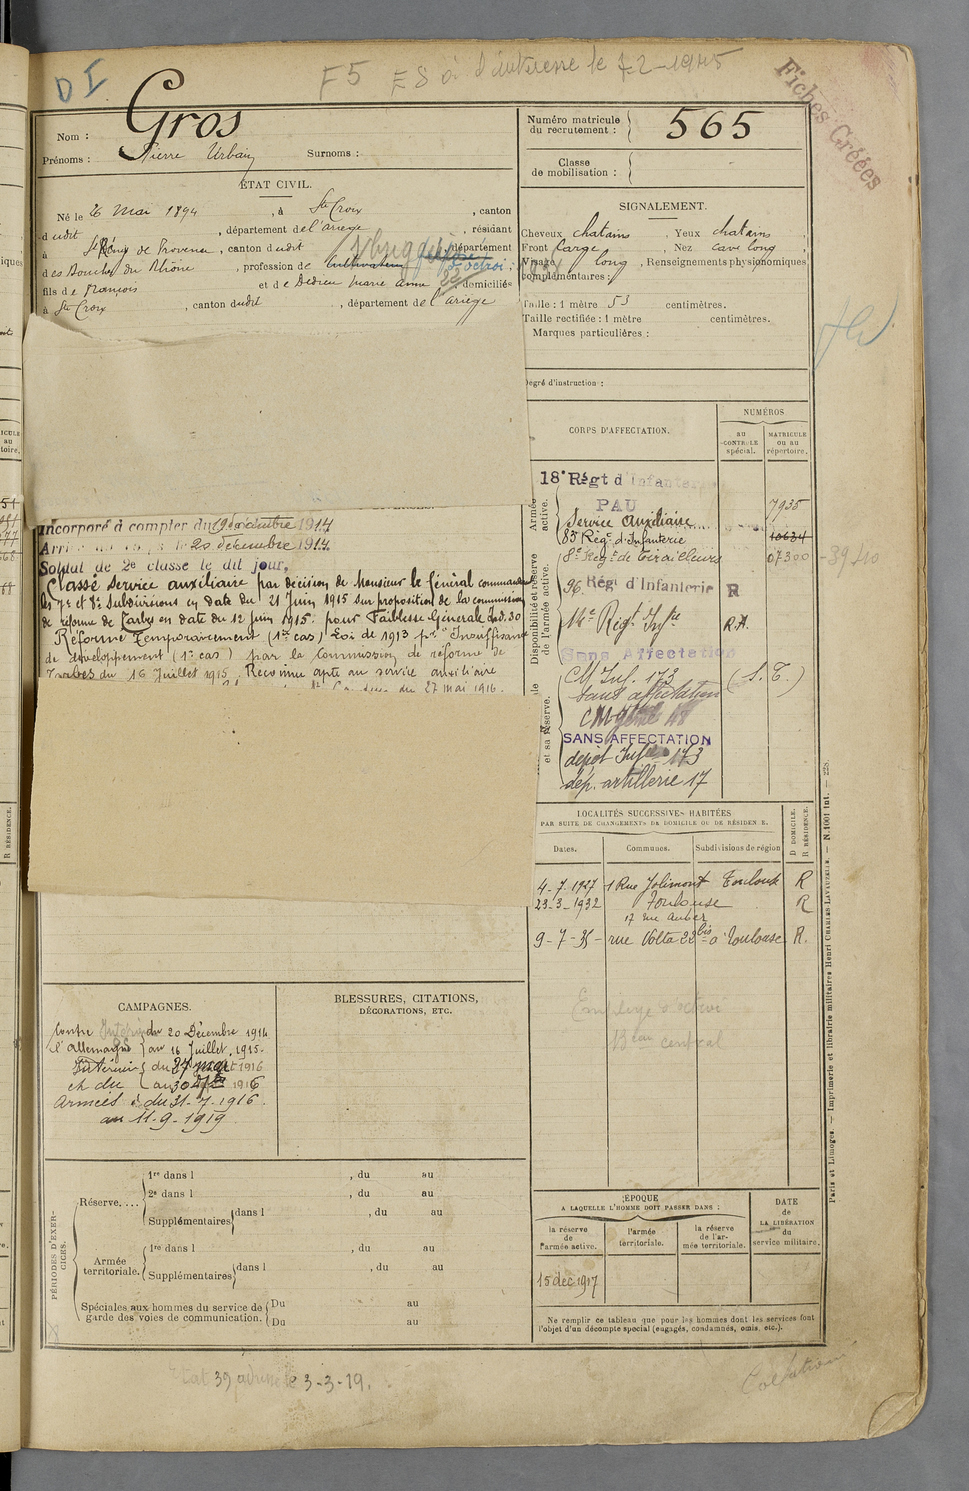 D I
F5
Fiches Créées
Nom : Gros
Prénoms : Pierre Urbain Surnoms :
Numéro matricule du recrutement : 565
Classe de mobilisation :
ÉTAT CIVIL.
Né le 26 Mai 1894, à Ste Croix, canton
dudit, département de l'ariège, résidant
à St Rémy de Provence, canton dudit, département
des Bouches du Rhône, profession de cultivateur
fils de François et de Dedieu Marie Anne domiciliés
à Ste Croix, canton dudit, département de l'ariège
SIGNALEMENT.
Cheveux chatains, Yeux chatains,
Front large, Nez cave long,
Visage long, Renseignements physionomiques
complémentaires :
Taille : 1 mètre 53 centimètres.
Taille rectifiée : 1 mètre centimètres.
Marques particulières :
Degré d'instruction :
CORPS D'AFFECTATION.
NUMÉROS
au CONTROLE spécial.
MATRICULE ou au répertoire.
Armée active.
18e Régt d'Infanterie
PAU
7935
Service Auxiliaire
83 Régt d'Infanterie
10634
Disponibilité et réserve de l'armée active.
8e Régt de Tirailleurs 07300
96 Régt d'Infanterie R
14e Régt Infie R.A.
Sans Affectation
et sa réserve.
CM Inf. 173 (S.T.)
sans affectation
CM génie 18
SANS AFFECTATION
dépôt Infie 173
dép. artillerie 17
Incorporé à compter du 19 décembre 1914
20 décembre 1914
Soldat de 2e classe le dit jour,
Classé Service auxiliaire par décision de Monsieur le Général commandant
les 7e et 8e Subdivisions en date du 21 Juin 1915 sur proposition de la commission
de réforme de Tarbes en date du 12 Juin 1915 : pour Faiblesse Générale
Réformé Temporairement (1er cas) Loi de 1913 pr Insuffisance
de développement (1er cas) par la Commission de réforme de
Tarbes du 16 Juillet 1915. Reconnu apte au service auxiliaire
du 27 mai 1916.
LOCALITÉS SUCCESSIVES HABITÉES
PAR SUITE DE CHANGEMENTS DE DOMICILE OU DE RÉSIDENCE.
Dates. Communes. Subdivisions de région
D DOMICILE. R RÉSIDENCE.
4-7-1927 1 Rue Jolimont Toulouse R
23-3-1932 Toulouse R
17 rue Auber
9-7-35 - rue Volta 22bis à Toulouse R.
CAMPAGNES.
contre l'allemagne
du 20 Décembre 1914
au 16 Juillet 1915.
Intérieur du 1916
et du au 30 1916
Armées du 31-7-1916
au 11-9-1919
BLESSURES, CITATIONS,
DÉCORATIONS, ETC.
PÉRIODES D'EXERCICES.
Réserve....
1re dans l , du au
2e dans l , du au
Supplémentaires dans l , du au
Armée territoriale.
1re dans l , du au
Supplémentaires dans l , du au
Spéciales aux hommes du service de garde des voies de communication.
Du au
Du au
ÉPOQUE
A LAQUELLE L'HOMME DOIT PASSER DANS :
la réserve de l'armée active.
l'armée territoriale.
la réserve de l'armée territoriale.
DATE de LA LIBÉRATION du service militaire.
15 déc 1917
Ne remplir ce tableau que pour les hommes dont les services font
l'objet d'un décompte spécial (engagés, condamnés, omis, etc.).
Paris et Limoges. — Imprimerie et librairie militaires Henri CHARLES-LAVAUZELLE. — N. 1001 Int. — 228.
3-3-19.